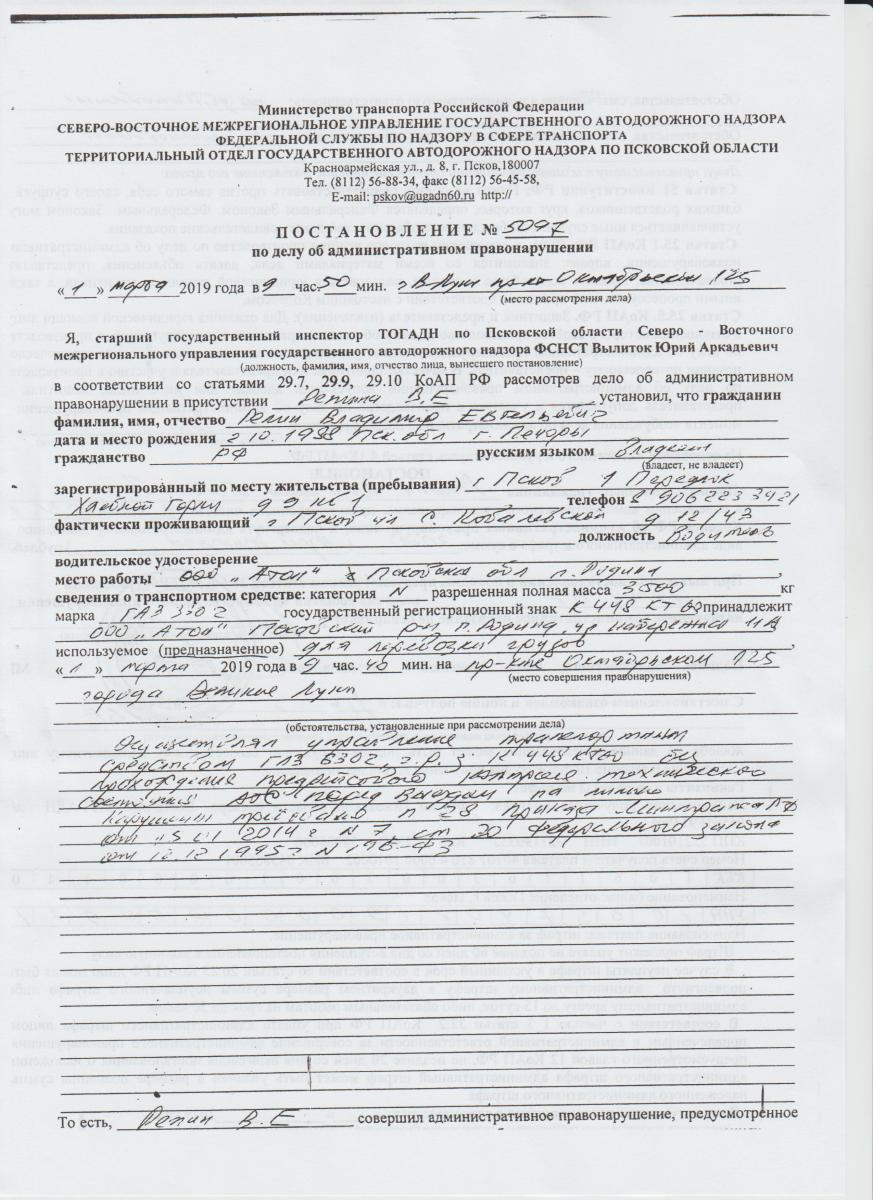 Министерство транспорта Российской Федерации
СЕВЕРО-ВОСТОЧНОЕ МЕЖРЕГИОНАЛЬНОЕ УПРАВЛЕНИЕ ГОСУДАРСТВЕННОГО АВТОДОРОЖНОГО НАДЗОРА
ФЕДЕРАЛЬНОЙ СЛУЖБЫ ПО НАДЗОРУ В СФЕРЕ ТРАНСПОРТА
ТЕРРИТОРИАЛЬНЫЙ ОТДЕЛ ГОСУДАРСТВЕННОГО АВТОДОРОЖНОГО НАДЗОРА ПО ПСКОВСКОЙ ОБЛАСТИ
Красноармейская ул., д. 8, г. Псков,180007
Тел. (8112) 56-88-34, факс (8112) 56-45-58,
E-mail: pskov@ugadn60.ru http://
ПОСТАНОВЛЕНИЕ № 5097
по делу об административном правонарушении
« 1 » марта 2019 года в 9 час. 50 мин. г В Луки пр-кт Октябрьский 125
(место рассмотрения дела)
Я, старший государственный инспектор ТОГАДН по Псковской области Северо - Восточного
межрегионального управления государственного автодорожного надзора ФСНСТ Вылиток Юрий Аркадьевич
(должность, фамилия, имя, отчество лица, вынесшего постановление)
в соответствии со статьями 29.7, 29.9, 29.10 КоАП РФ рассмотрев дело об административном
правонарушении в присутствии Репина В.Е установил, что гражданин
фамилия, имя, отчество Репин Владимир Евгеньевич
дата и место рождения 2 10. Пск. обл г. Печоры
гражданство РФ русским языком владеет
(владеет, не владеет)
зарегистрированный по месту жительства (пребывания) г Псков 1 Переулок
Хлебной Горки д 9 кв 1 телефон 8 906 223 3421
фактически проживающий г Псков ул С. Ковалевской д 12/43
должность Водитель
водительское удостоверение
место работы ООО „Атол" Псковская обл п. Родина ,
сведения о транспортном средстве: категория N разрешенная полная масса 3500 кг
марка ГАЗ 3302 государственный регистрационный знак К 448 КТ 60, принадлежит
ООО „Атол" Псковский р-н, п. Родина, ул Набережная
используемое (предназначенное) для перевозки грузов ,
« 1 » марта 2019 года в 9 час. 40 мин. на пр-кте Октябрьском 125
(место совершения правонарушения)
города Великие Луки
(обстоятельства, установленные при рассмотрении дела)
Осуществлял управление транспортным
средством ГАЗ 3302, г.р.з К 448 КТ60 без
прохождения предрейсового контроля технического
состояния перед выездом на линию
Нарушены требования п 28 Приказа Минтранса РФ
от 15 01 2014 г N 7, ст 20 Федерального закона
от 10.12 1995 г N 196-ФЗ
То есть, Репин В.Е совершил административное правонарушение, предусмотренное